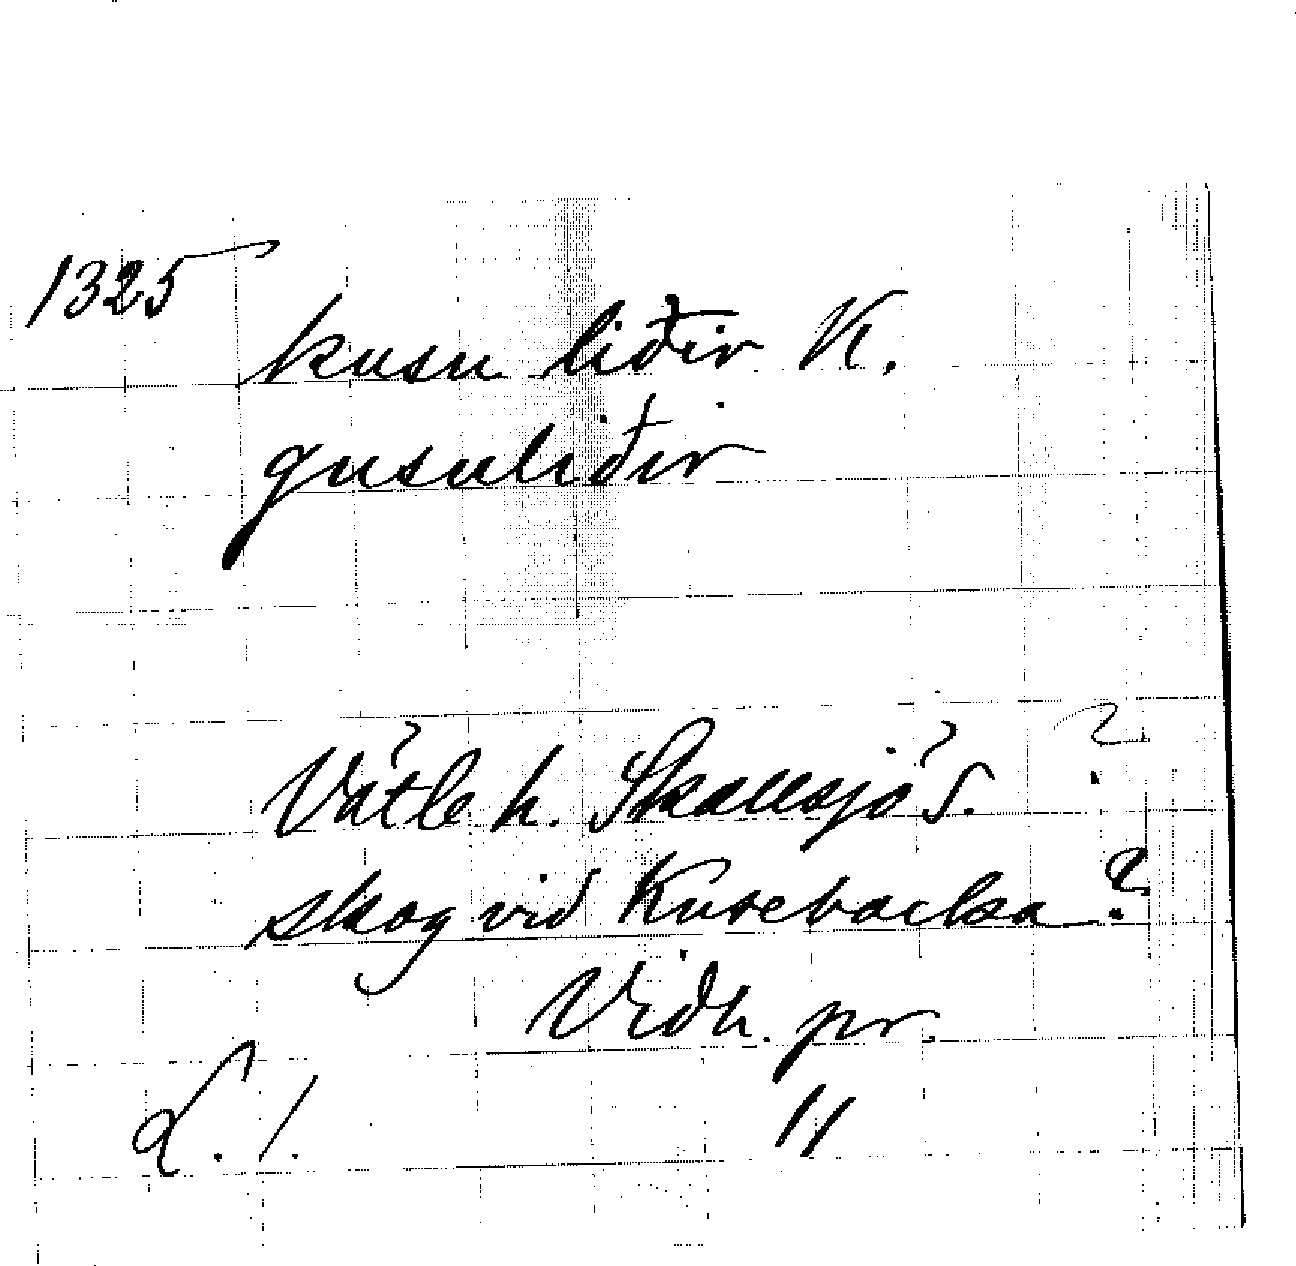 1325
kusu liðir K.
gusuliðir
?
Vätle h. Skallsjö s.
skog vid Kusebacka ?
Vidh. pr.
L. 1.